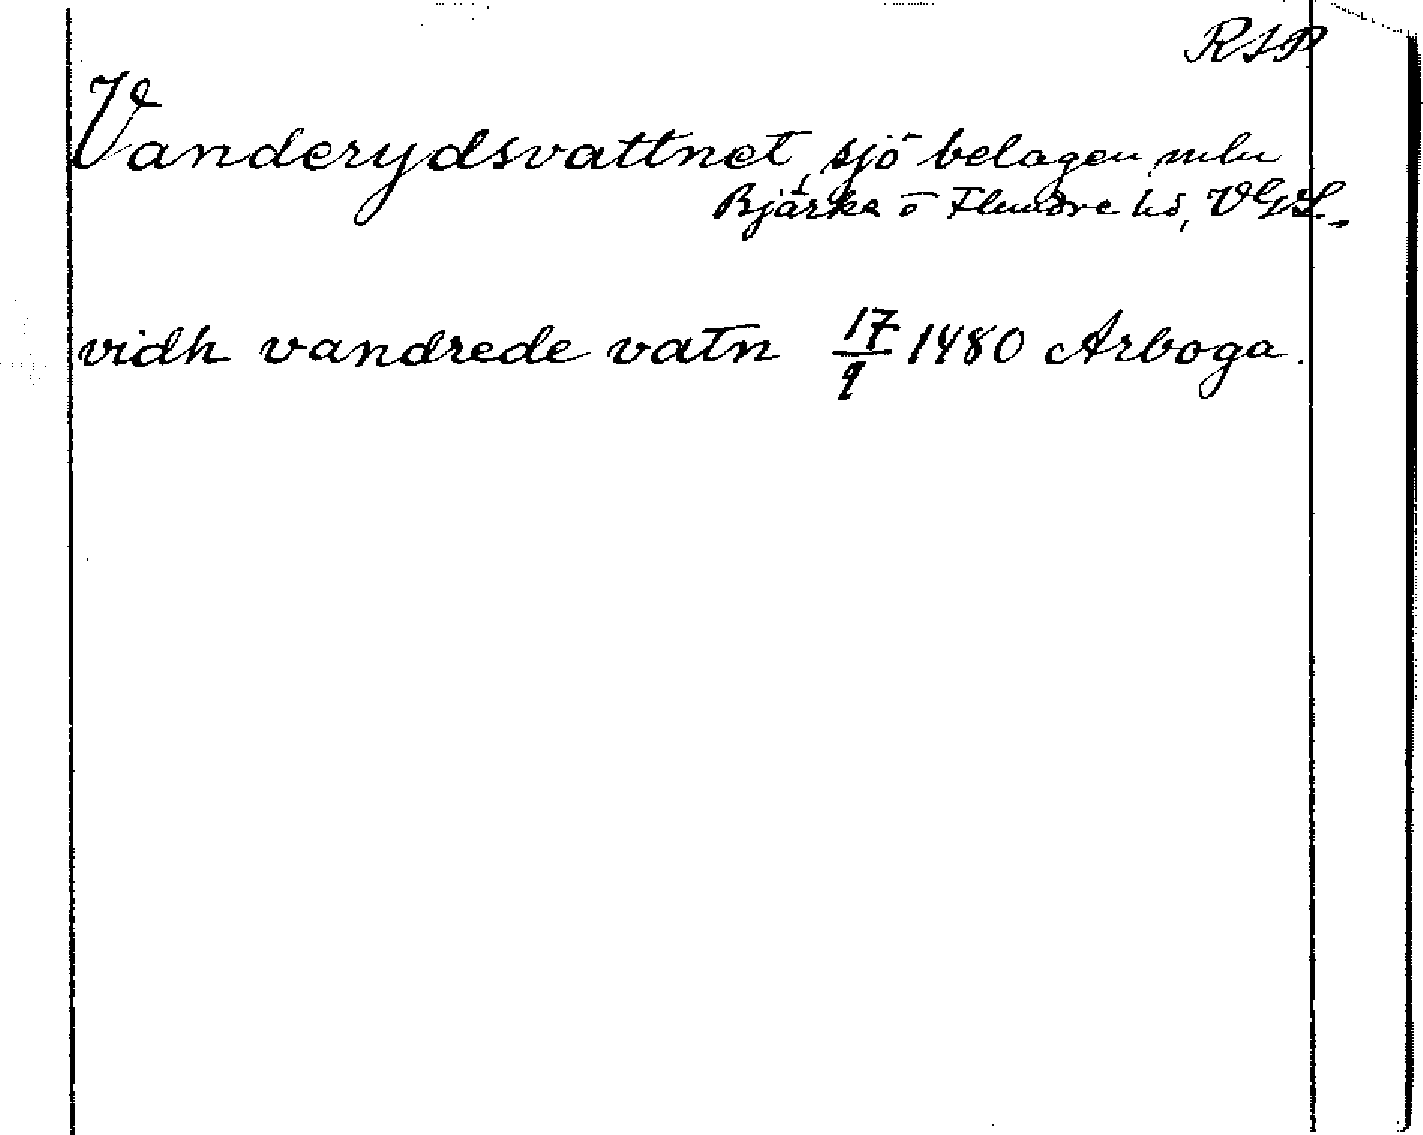 RSP
Vanderydsvattnet, sjö belagen mln
Bjärke o Flundre hd, VGL.
vidh vandrede vatn 17/9 1480 Arboga.